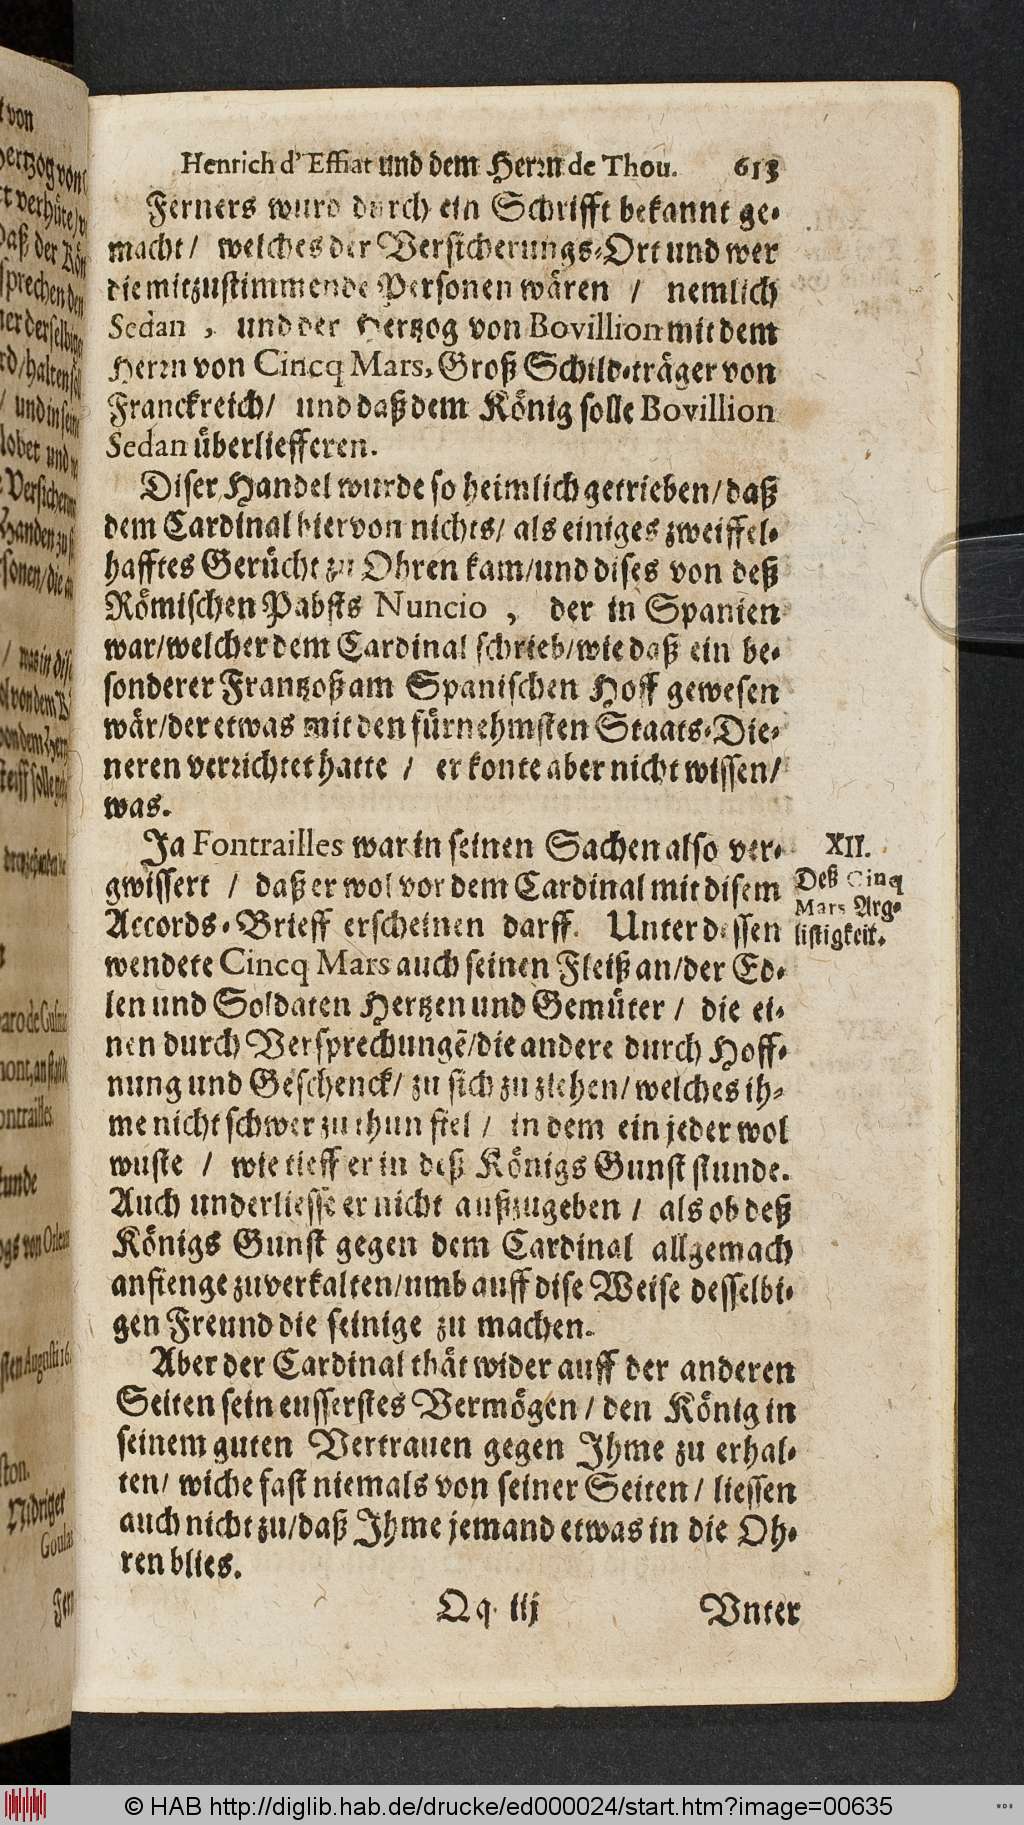 Henrich d'Effiat und dem Herrn de Thou. 613
Ferners wurd durch ein Schrifft bekannt ge-
macht / welches der Versicherungs-Ort und wer
die mitzustimmende Personen wären / nemlich
Sedan , und der Hertzog von Bovillion mit dem
Herrn von Cincq Mars, Groß Schild-träger von
Franckreich / und daß dem König solle Bovillion
Sedan überliefferen.
Diser Handel wurde so heimlich getrieben / daß
dem Cardinal hiervon nichts / als einiges zweiffel-
hafftes Gerücht zu Ohren kam / und dises von deß
Römischen Pabsts Nuncio , der in Spanien
war / welcher dem Cardinal schrieb / wie daß ein be-
sonderer Frantzoß am Spanischen Hoff gewesen
wär / der etwas mit den fürnehmsten Staats-Die-
neren verrichtet hatte / er konte aber nicht wissen /
was.
Ja Fontrailles war in seinen Sachen also ver-
gwissert / daß er wol vor dem Cardinal mit disem
Accords-Brieff erscheinen darff. Unterdessen
wendete Cincq Mars auch seinen Fleiß an / der Ed-
len und Soldaten Hertzen und Gemüter / die ei-
nen durch Versprechungē / die andere durch Hoff-
nung und Geschenck / zu sich zu ziehen / welches ih-
me nicht schwer zu thun fiel / in dem ein jeder wol
wuste / wie tieff er in deß Königs Gunst stunde.
Auch underliesse er nicht außzugeben / als ob deß
Königs Gunst gegen dem Cardinal allgemach
anfienge zuverkalten / umb auff dise Weise desselbi-
gen Freund die seinige zu machen.
Aber der Cardinal thät wider auff der anderen
Seiten sein eusserstes Vermögen / den König in
seinem guten Vertrauen gegen Ihme zu erhal-
ten / wiche fast niemals von seiner Seiten / liessen
auch nicht zu / daß Ihme jemand etwas in die Oh-
ren blies.
Qq iij Vnter
XII.
Deß Cinq
Mars Arg-
listigkeit.
t von
verhüte /
daß der Kön
sprechen den
/ halten
/ und in
lobet und
Versicher
Handen zu
sonen / die
/ was in dis
von dem
ont, an
ontrailles
unde
von Orlean
sten Augusti 16
ston.
Nidriger
Goulas
Fer
© HAB http://diglib.hab.de/drucke/ed000024/start.htm?image=00635